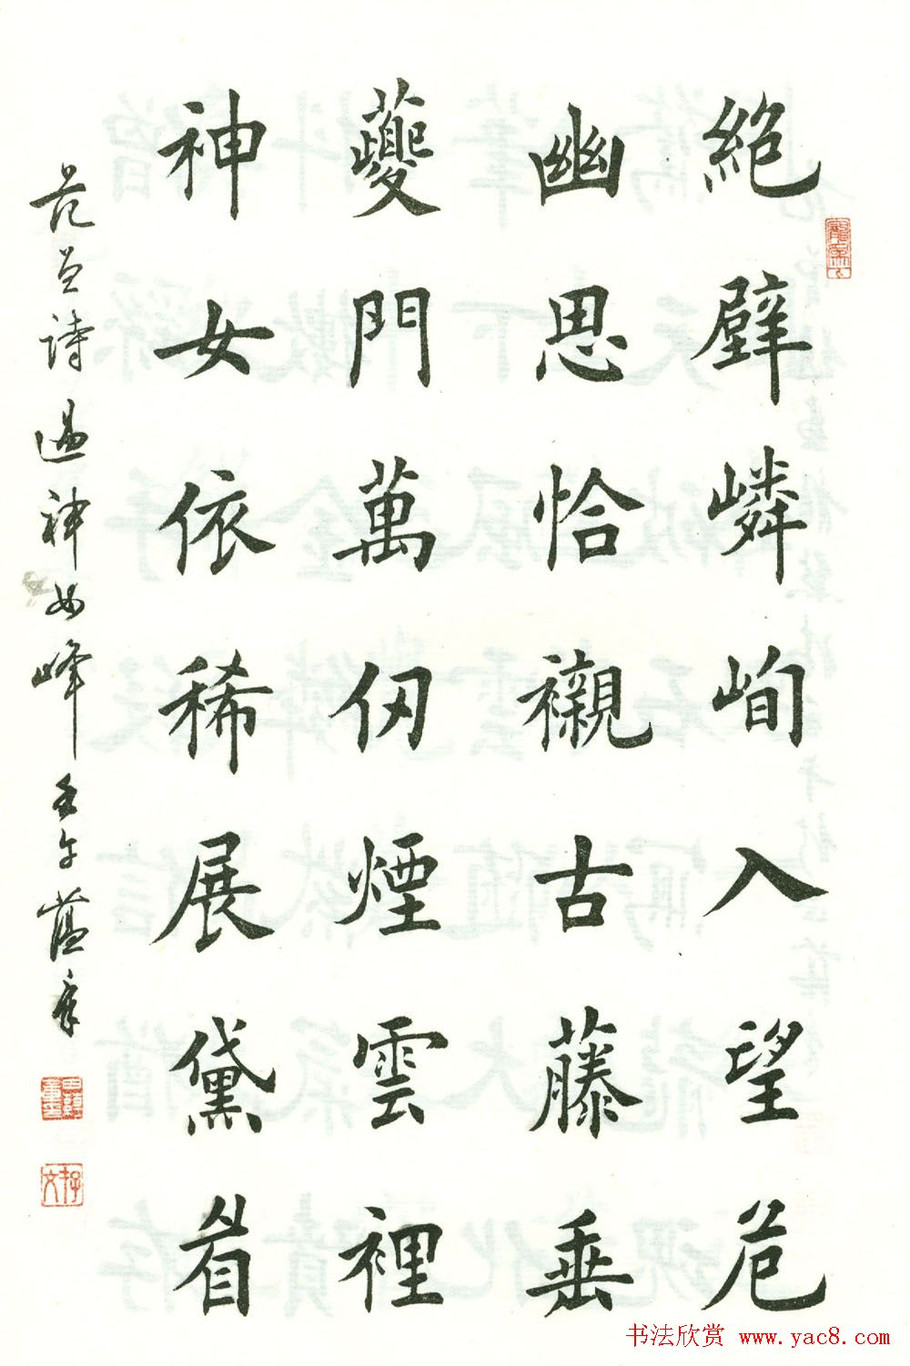 絶壁嶙峋入望危
幽思恰襯古藤垂
夔門萬仞煙雲裡
神女依稀展黛眉
范曾詩過神女峰壬午蘊章
书法欣赏 www.yac8.com